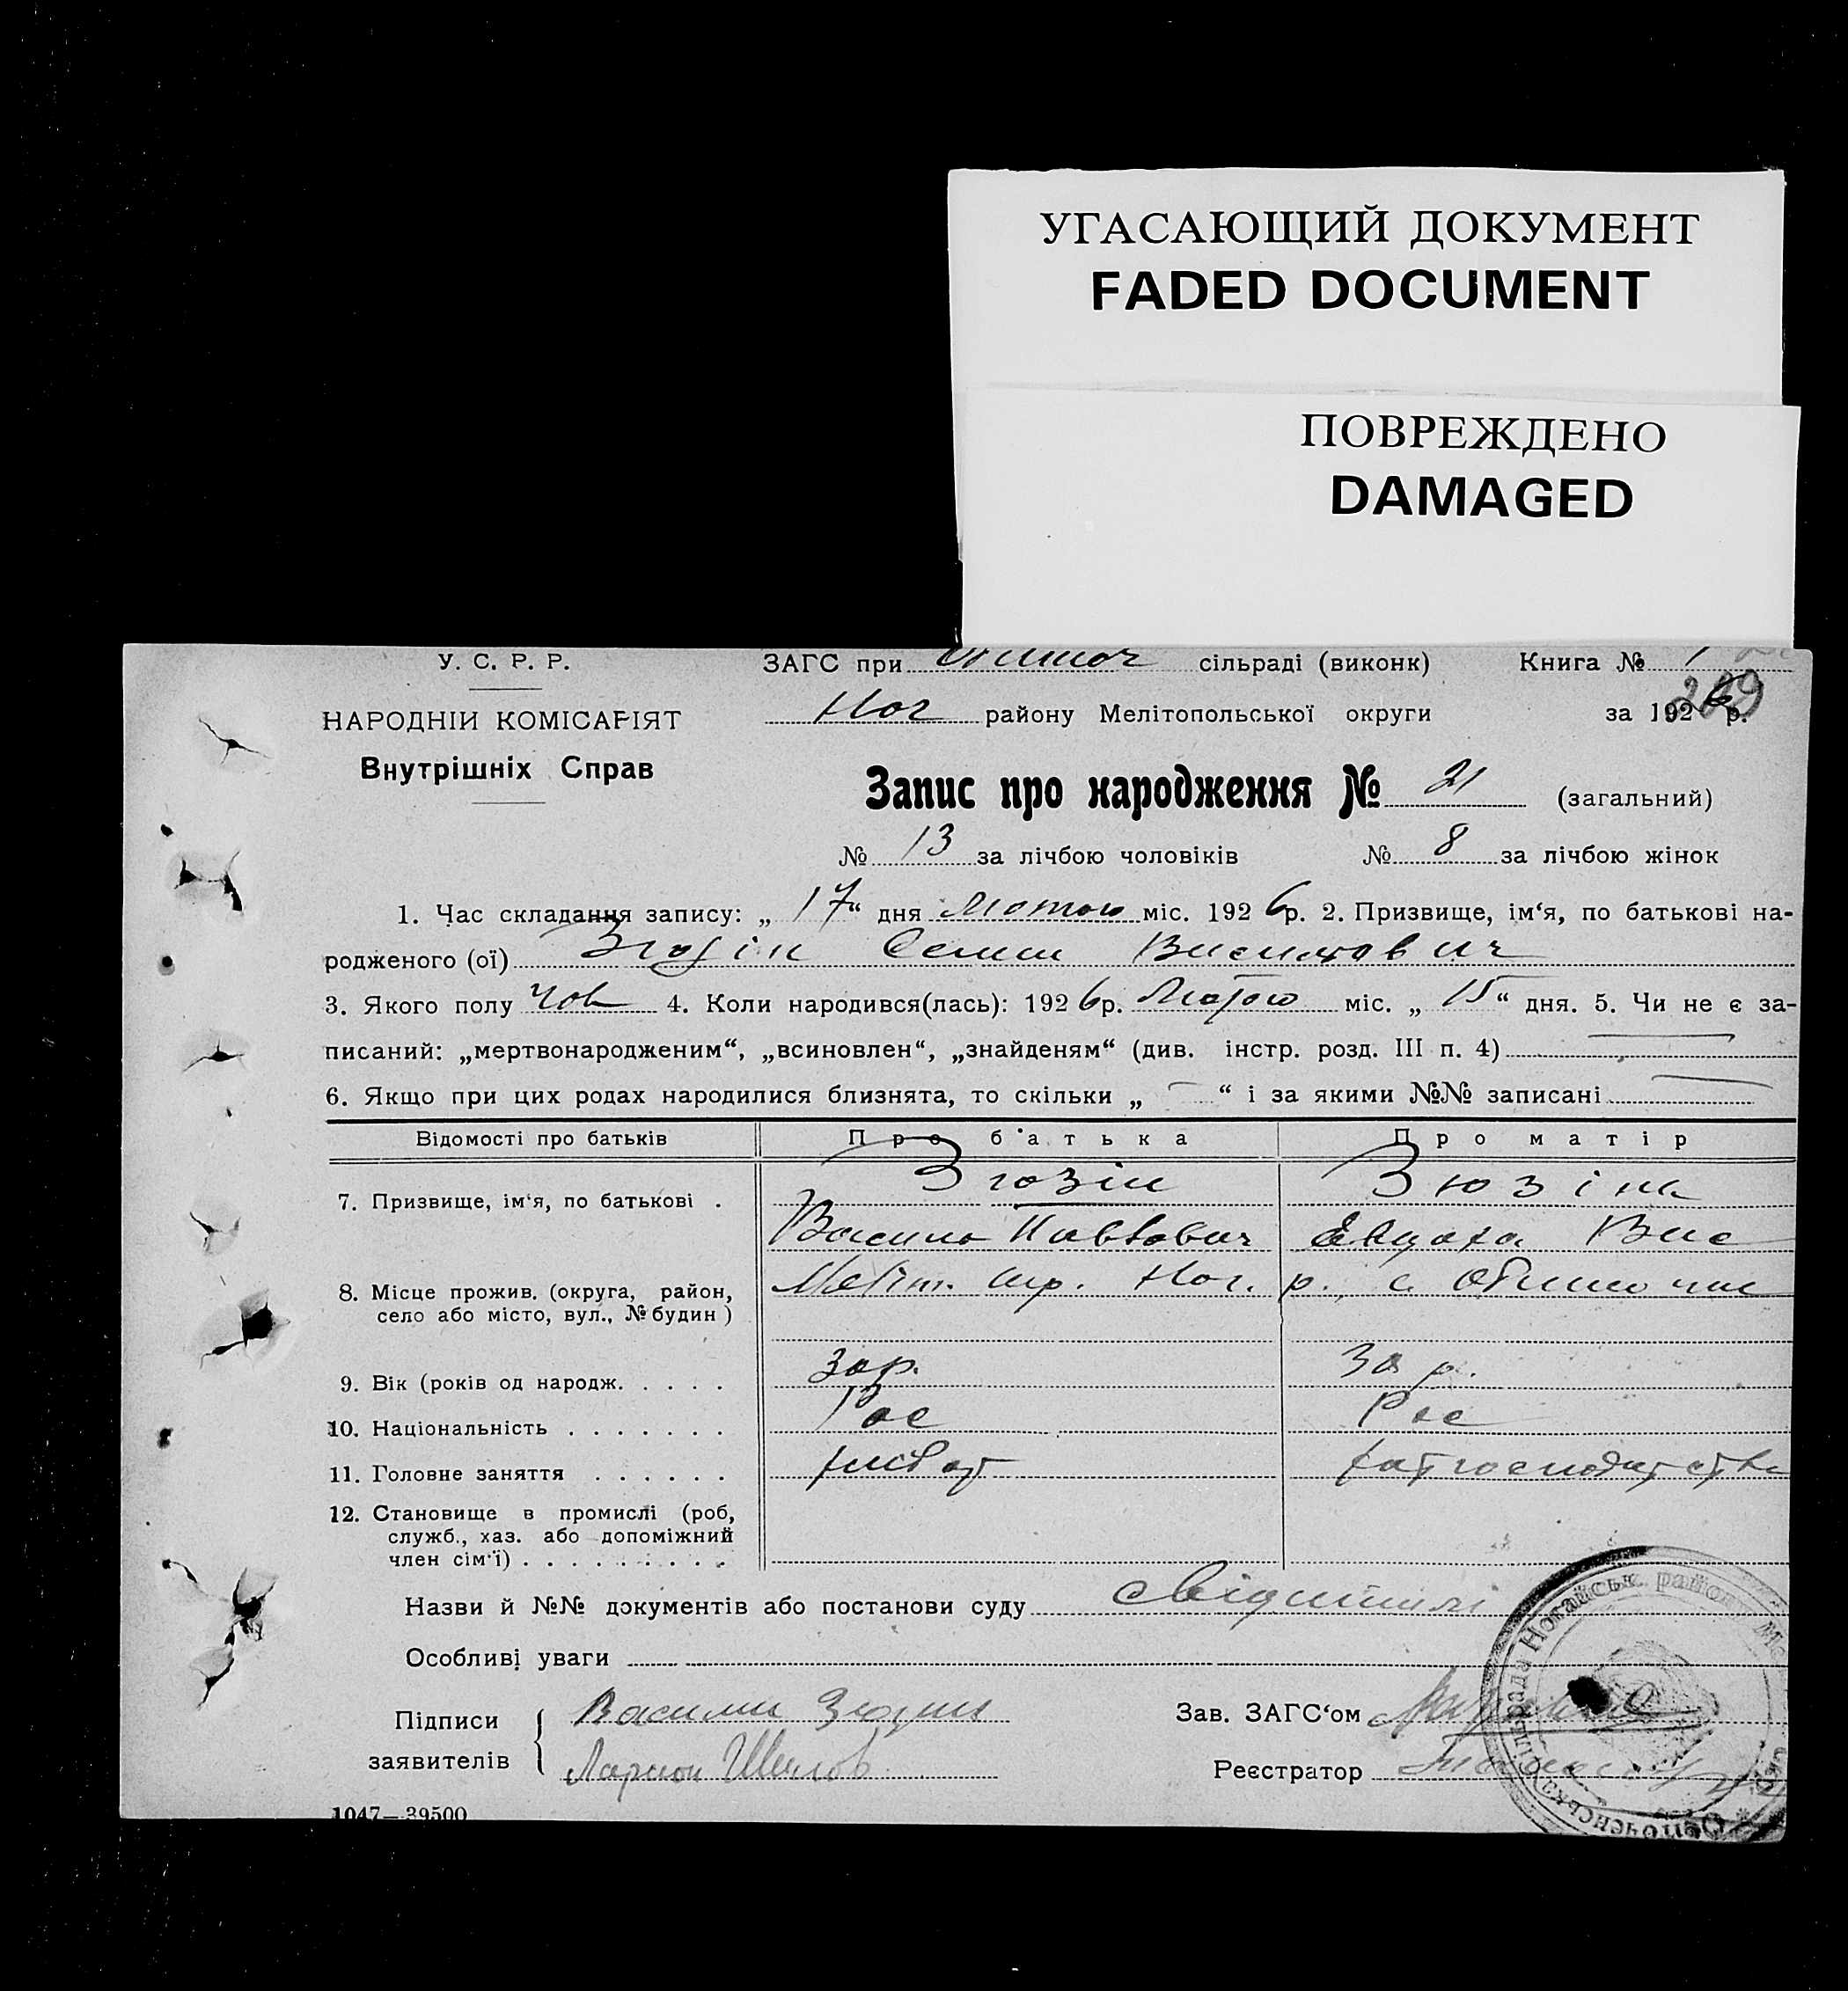 УГАСАЮЩИЙ ДОКУМЕНТ
FADED DOCUMENT
ПОВРЕЖДЕНО
DAMAGED
У. С. Р. Р.
НАРОДНІЙ КОМІСАРІЯТ
Внутрішніх Справ
ЗАГС при сільраді (виконк) Книга № 1
Ног району Мелітопольської округи за 1926 р.
209
Запис про народження № 21 (загальний)
№ 13 за лічбою чоловіків № 8 за лічбою жінок
1. Час складання запису: „ 17 “ дня Лютого міс. 1926 р. 2. Призвище, ім‘я, по батькові на-
родженого (ої) Зюзін Семен Васильович
3. Якого полу Чов 4. Коли народився(лась): 1926 р. Лютого міс. „ 15 “ дня. 5. Чи не є за-
писаний: „мертвонародженим“, „всиновлен“, „знайденям“ (див. інстр. розд. III п. 4)
6. Якщо при цих родах народилися близнята, то скільки „ — “ і за якими №№ записані
Відомості про батьків Про батька Про матір
7. Призвище, ім‘я, по батькові . Зюзін Зюзіна
Василь Павлович Евдоха Вас
8. Місце прожив. (округа, район, Меліт. окр. Ног. р., с. Обиточне
село або місто, вул., № будин )
9. Вік (років од народж. . . . . 30 р. 30 р.
10. Національність . . . . . . . Рос Рос
11. Головне заняття . . . . . . хлібор хат господарство
12. Становище в промислі (роб,
служб., хаз. або допоміжний
член сім‘ї) . . . . . . . . .
Назви й №№ документів або постанови суду
Особливі уваги
Підписи
заявителів
Василий Зюзин
Ларион Шилов
Зав. ЗАГС‘ом
Реєстратор
Ногайськ. району
1047—39500